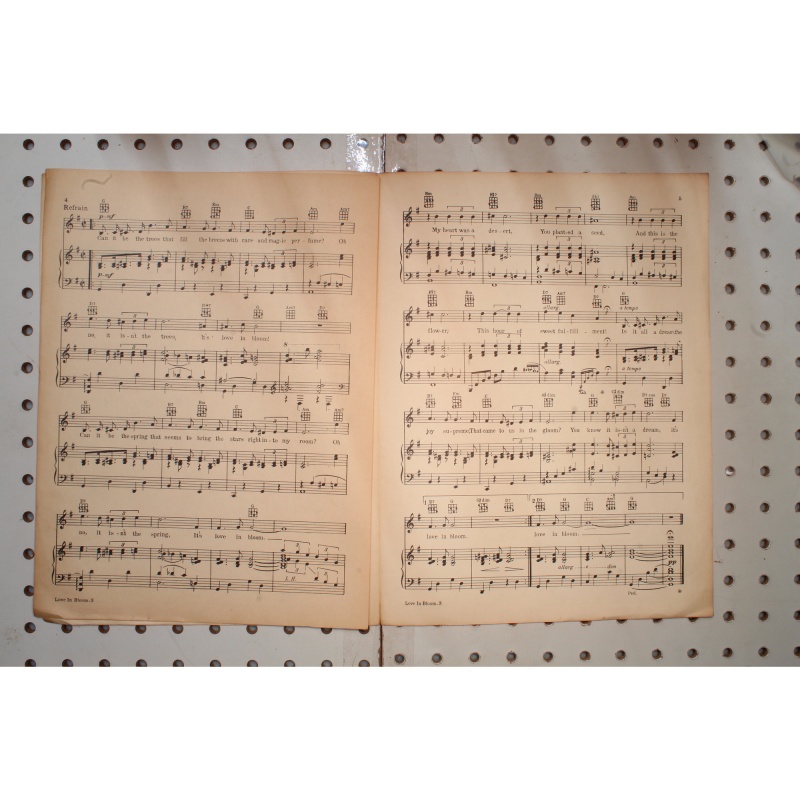 4
Refrain
G
p-mf
Can it be the trees that fill the breeze with rare and mag-ic per-fume? Oh
p-mf
no, it is-n't the trees, It's love in bloom!
Can it be the spring that seems to bring the stars right in-to my room? Oh
no, it is-n't the spring, It's love in bloom.
L.H.
Love In Bloom-3
5
My heart was a des-ert, You plant-ed a seed, And this is the
allarg a tempo
flow-er; This hour of sweet ful-fill-ment! Is it all a dream? the
allarg a tempo
joy su-preme, That came to us in the gloom? You know it is-n't a dream, it's
love in bloom. love in bloom.
allarg
pp
Love In Bloom-3